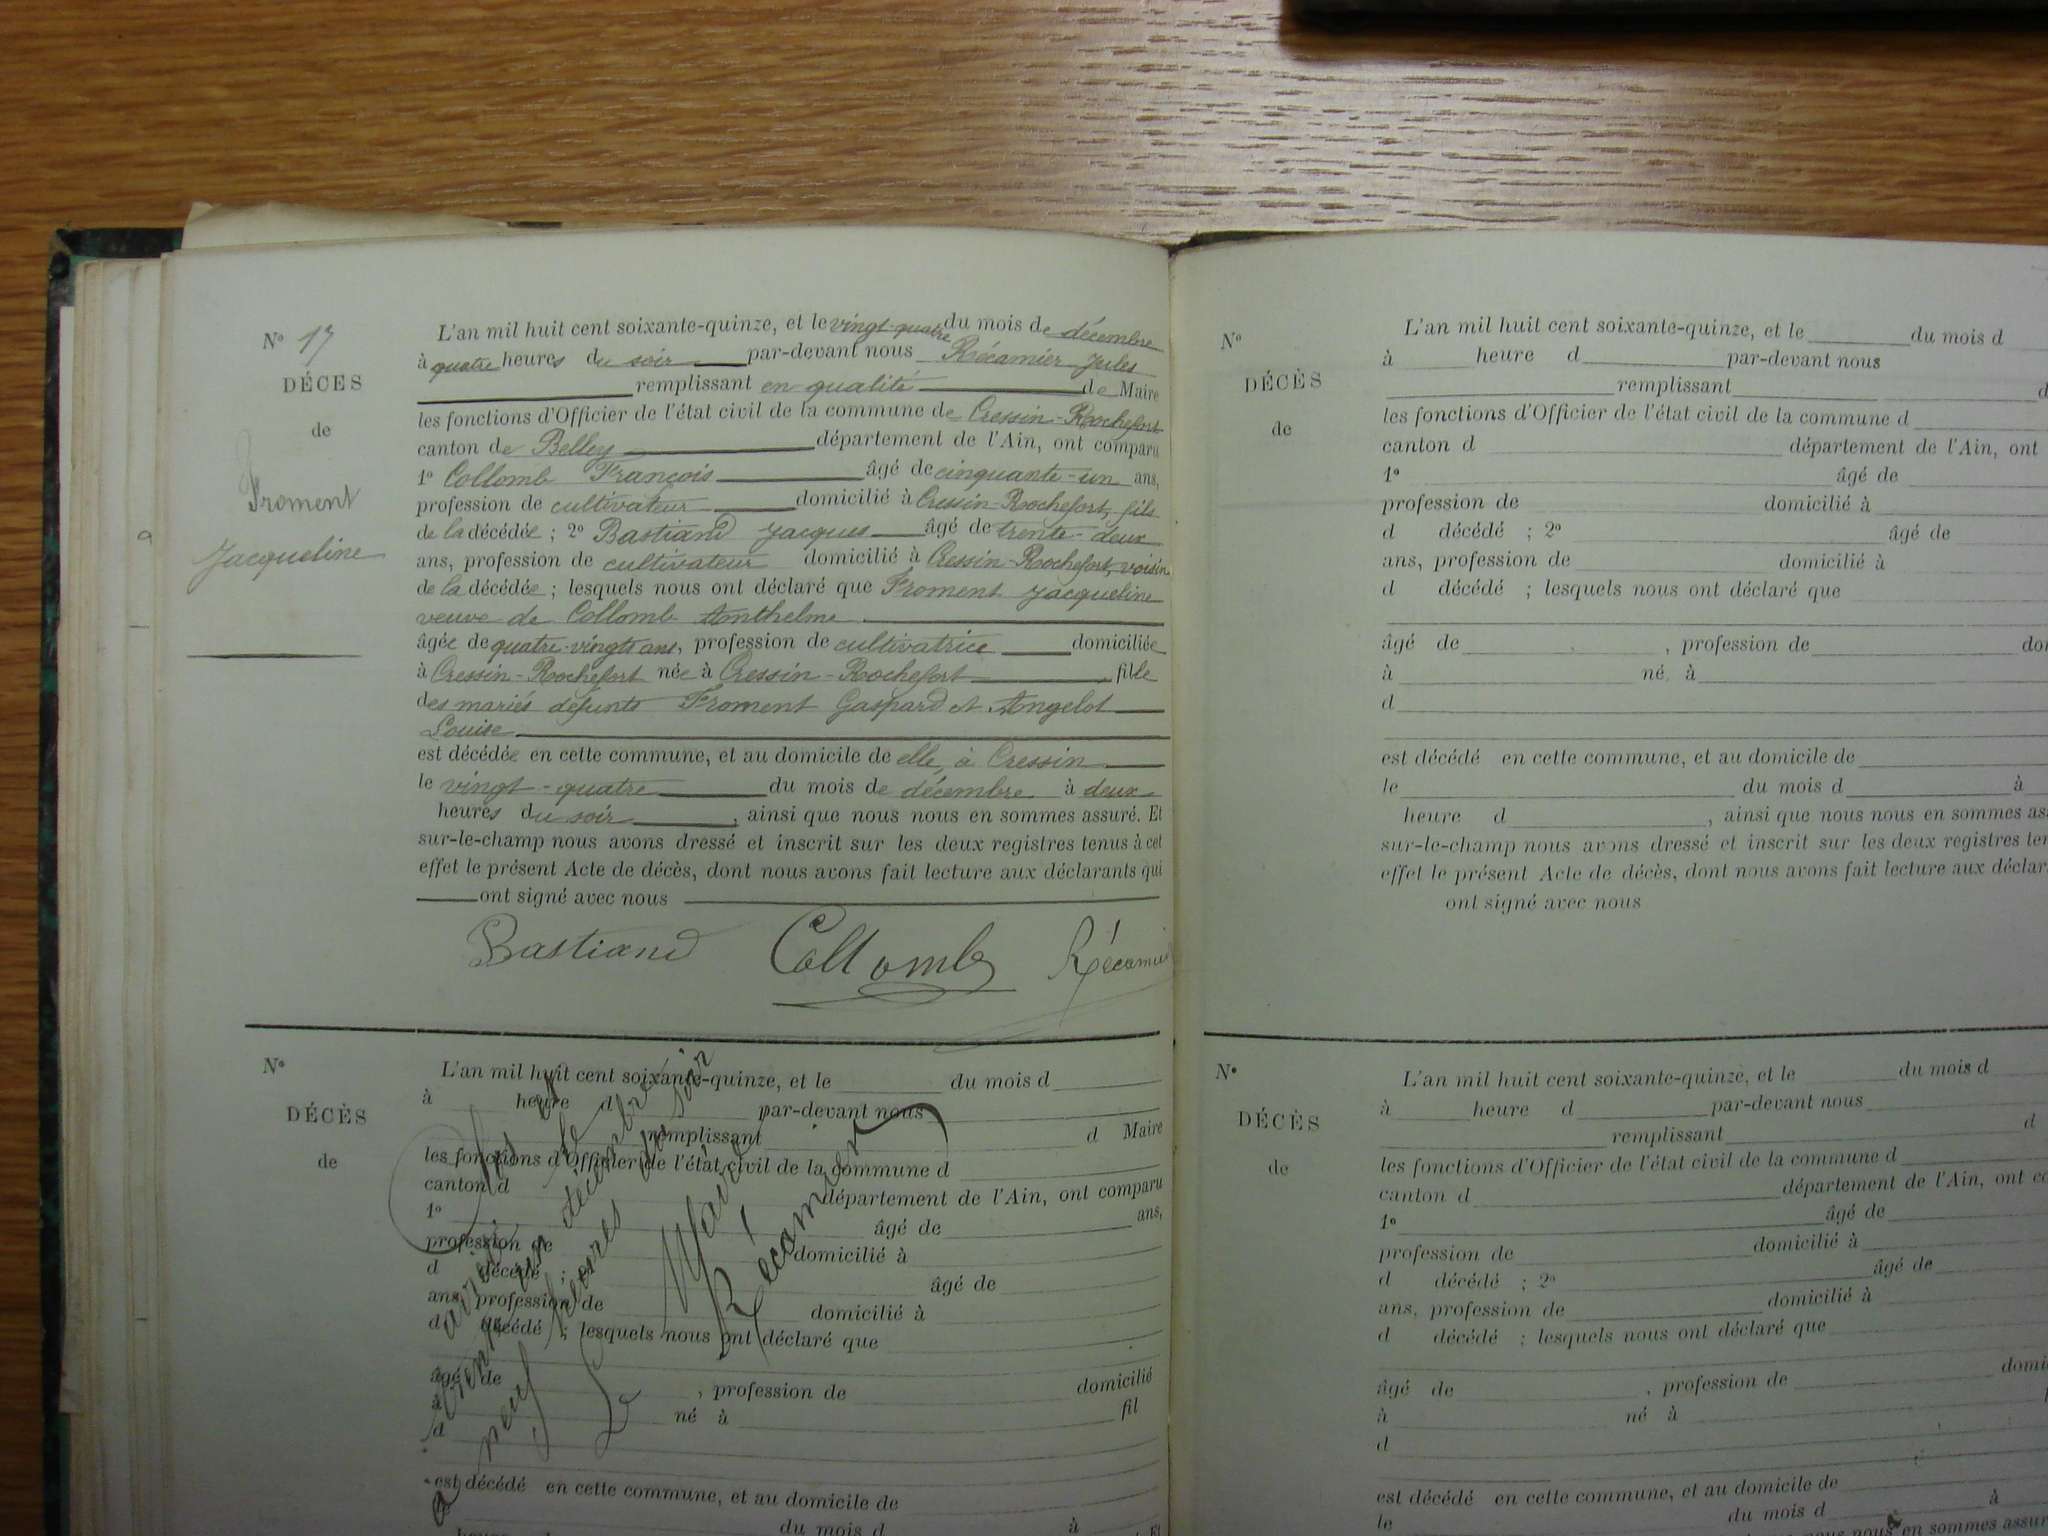 Nº 17
DÉCES
de
Froment
Jacqueline
L'an mil huit cent soixante-quinze, et le vingt-quatre du mois de décembre
à quatre heures du soir par-devant nous Récamier Jules
remplissant en qualité de Maire
les fonctions d'Officier de l'état civil de la commune de Cressin-Rochefort
canton de Belley département de l'Ain, ont comparu
1º Collomb François âgé de cinquante-un ans,
profession de cultivateur domicilié à Cressin-Rochefort, fils
de la décédée ; 2º Bastiand Jacques âgé de trente-deux
ans, profession de cultivateur domicilié à Cressin-Rochefort, voisin
de la décédée ; lesquels nous ont déclaré que Froment Jacqueline
veuve de Collomb Anthelme
âgée de quatre-vingts ans, profession de cultivatrice domiciliée
à Cressin-Rochefort née à Cressin-Rochefort, fille
des mariés défunts Froment Gaspard et Angelot
Louise
est décédée en cette commune, et au domicile de elle, à Cressin
le vingt-quatre du mois de décembre à deux
heures du soir, ainsi que nous nous en sommes assuré. Et
sur-le-champ nous avons dressé et inscrit sur les deux registres tenus à cet
effet le présent Acte de décès, dont nous avons fait lecture aux déclarants qui
ont signé avec nous
Bastiand Collomb Récamier
Nº
DÉCÈS
de
L'an mil huit cent soixante-quinze, et le du mois d
à heure d par-devant nous
remplissant d Maire
les fonctions d'Officier de l'état civil de la commune d
canton d département de l'Ain, ont comparu
1º âgé de ans,
profession de domicilié à
d décédé ; âgé de
ans, profession de domicilié à
d décédé ; lesquels nous ont déclaré que
âgé de , profession de domicilié
à né à fil
d
est décédé en cette commune, et au domicile de
le du mois d à
Clos et
le
décembre
neuf heures du soir
Le Maire
Récamier
Nº
DÉCÈS
de
L'an mil huit cent soixante-quinze, et le du mois d
à heure d par-devant nous
remplissant d
les fonctions d'Officier de l'état civil de la commune d
canton d département de l'Ain, ont
1º âgé de
profession de domicilié à
d décédé ; 2º âgé de
ans, profession de domicilié à
d décédé ; lesquels nous ont déclaré que
âgé de , profession de dom
à né à
d
est décédé en cette commune, et au domicile de
le du mois d à
heure d , ainsi que nous nous en sommes ass
sur-le-champ nous avons dressé et inscrit sur les deux registres ten
effet le présent Acte de décès, dont nous avons fait lecture aux déclar
ont signé avec nous
Nº
DÉCÈS
de
L'an mil huit cent soixante-quinze, et le du mois d
à heure d par-devant nous
remplissant d
les fonctions d'Officier de l'état civil de la commune d
canton d département de l'Ain, ont co
1º âgé de
profession de domicilié à
d décédé ; 2º âgé de
ans, profession de domicilié à
d décédé ; lesquels nous ont déclaré que
âgé de , profession de domi
à né à
d
est décédé en cette commune, et au domicile de
le du mois d à
nous en sommes assur